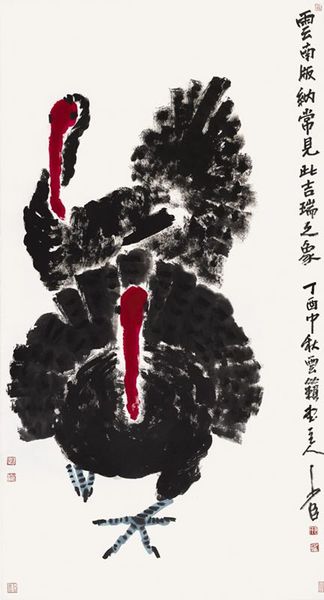 雲南版納常見此吉瑞之象
丁酉中秋雲籟堂主人